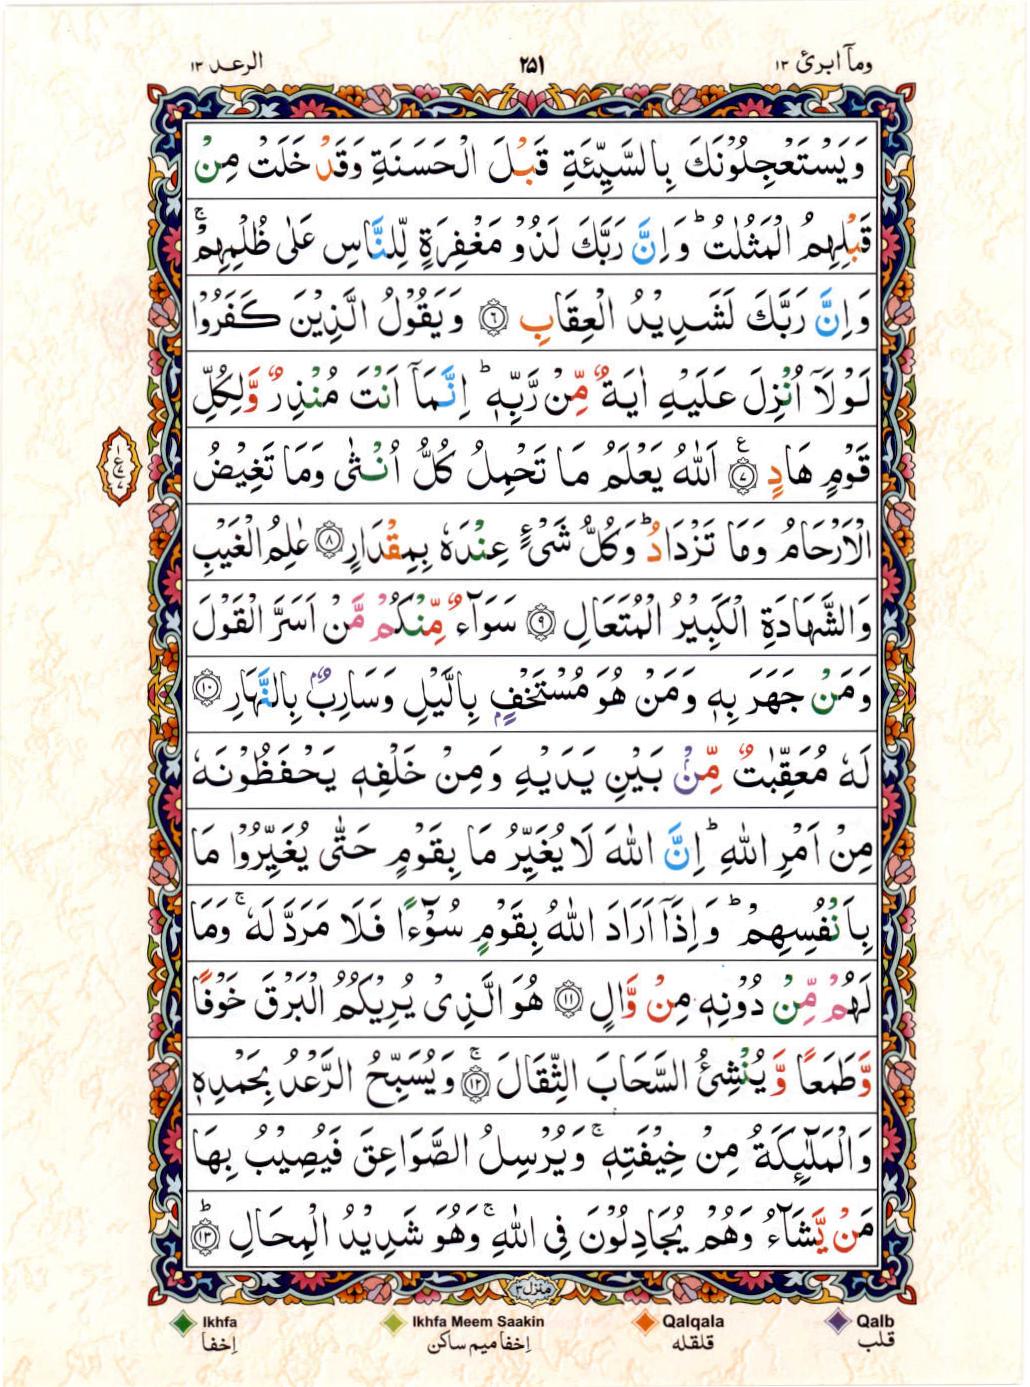 ومآ ابرئ ۱۳ ۲۵۱ الرعد ۱۳
وَيَسْتَعْجِلُوْنَكَ بِالسَّيِّئَةِ قَبْلَ الْحَسَنَةِ وَقَدْ خَلَتْ مِنْ
قَبْلِهِمُ الْمَثُلٰتُ ؕ وَاِنَّ رَبَّكَ لَذُوْ مَغْفِرَةٍ لِّلنَّاسِ عَلٰى ظُلْمِهِمْ ۚ
وَاِنَّ رَبَّكَ لَشَدِيْدُ الْعِقَابِ ۶ وَيَقُوْلُ الَّذِيْنَ كَفَرُوْا
لَوْلَآ اُنْزِلَ عَلَيْهِ اٰيَةٌ مِّنْ رَّبِّهٖ ؕ اِنَّمَآ اَنْتَ مُنْذِرٌ وَّلِكُلِّ
قَوْمٍ هَادٍ ۷ اَللّٰهُ يَعْلَمُ مَا تَحْمِلُ كُلُّ اُنْثٰى وَمَا تَغِيْضُ
الْاَرْحَامُ وَمَا تَزْدَادُ ؕ وَكُلُّ شَىْءٍ عِنْدَهٗ بِمِقْدَارٍ ۸ عٰلِمُ الْغَيْبِ
وَالشَّهَادَةِ الْكَبِيْرُ الْمُتَعَالِ ۹ سَوَآءٌ مِّنْكُمْ مَّنْ اَسَرَّ الْقَوْلَ
وَمَنْ جَهَرَ بِهٖ وَمَنْ هُوَ مُسْتَخْفٍۭ بِالَّيْلِ وَسَارِبٌۢ بِالنَّهَارِ ۱۰
لَهٗ مُعَقِّبٰتٌ مِّنْۢ بَيْنِ يَدَيْهِ وَمِنْ خَلْفِهٖ يَحْفَظُوْنَهٗ
مِنْ اَمْرِ اللّٰهِ ؕ اِنَّ اللّٰهَ لَا يُغَيِّرُ مَا بِقَوْمٍ حَتّٰى يُغَيِّرُوْا مَا
بِاَنْفُسِهِمْ ؕ وَاِذَآ اَرَادَ اللّٰهُ بِقَوْمٍ سُوْٓءًا فَلَا مَرَدَّ لَهٗ ۚ وَمَا
لَهُمْ مِّنْ دُوْنِهٖ مِنْ وَّالٍ ۱۱ هُوَ الَّذِىْ يُرِيْكُمُ الْبَرْقَ خَوْفًا
وَّطَمَعًا وَّيُنْشِئُ السَّحَابَ الثِّقَالَ ۚ ۱۲ وَيُسَبِّحُ الرَّعْدُ بِحَمْدِهٖ
وَالْمَلٰٓئِكَةُ مِنْ خِيْفَتِهٖ ۚ وَيُرْسِلُ الصَّوَاعِقَ فَيُصِيْبُ بِهَا
مَنْ يَّشَآءُ وَهُمْ يُجَادِلُوْنَ فِى اللّٰهِ ۚ وَهُوَ شَدِيْدُ الْمِحَالِ ؕ ۱۳
منزل ۳
Ikhfa Ikhfa Meem Saakin Qalqala Qalb
اِخفا اِخفا میم ساکن قلقله قلب